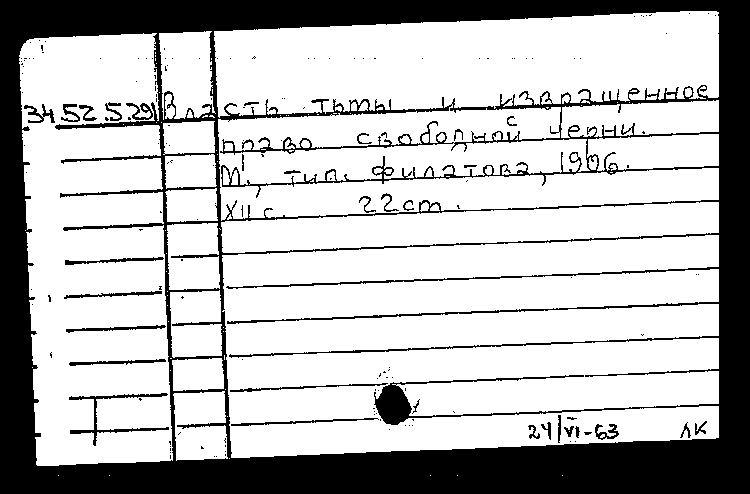 34.52.5.291 Власть тьмы и извращенное
право свободной черни.
М., тип. Филатова, 1906.
XII с. 22 cm.
24/VI-63 ЛК